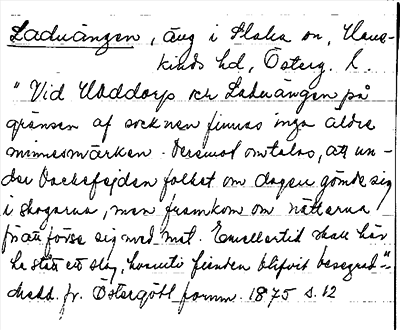 Laduängen, äng i Slaka sn, Hane-
kinds hd, Österg. l.
"Vid Uddorp och Laduängen på
gränsen af socknen finnas inga äldre
minnesmärken. Deremot omtalas, att un-
der Dackefejden folket om dagen gömde sig
i skogarna, men framkom om nätterna
för att förse sig med mat. Emellertid skall här
ha stått ett slag, hvaruti fienden blifvit besegrad" -
Medd. fr. Östergötl fornm. 1875 s. 12